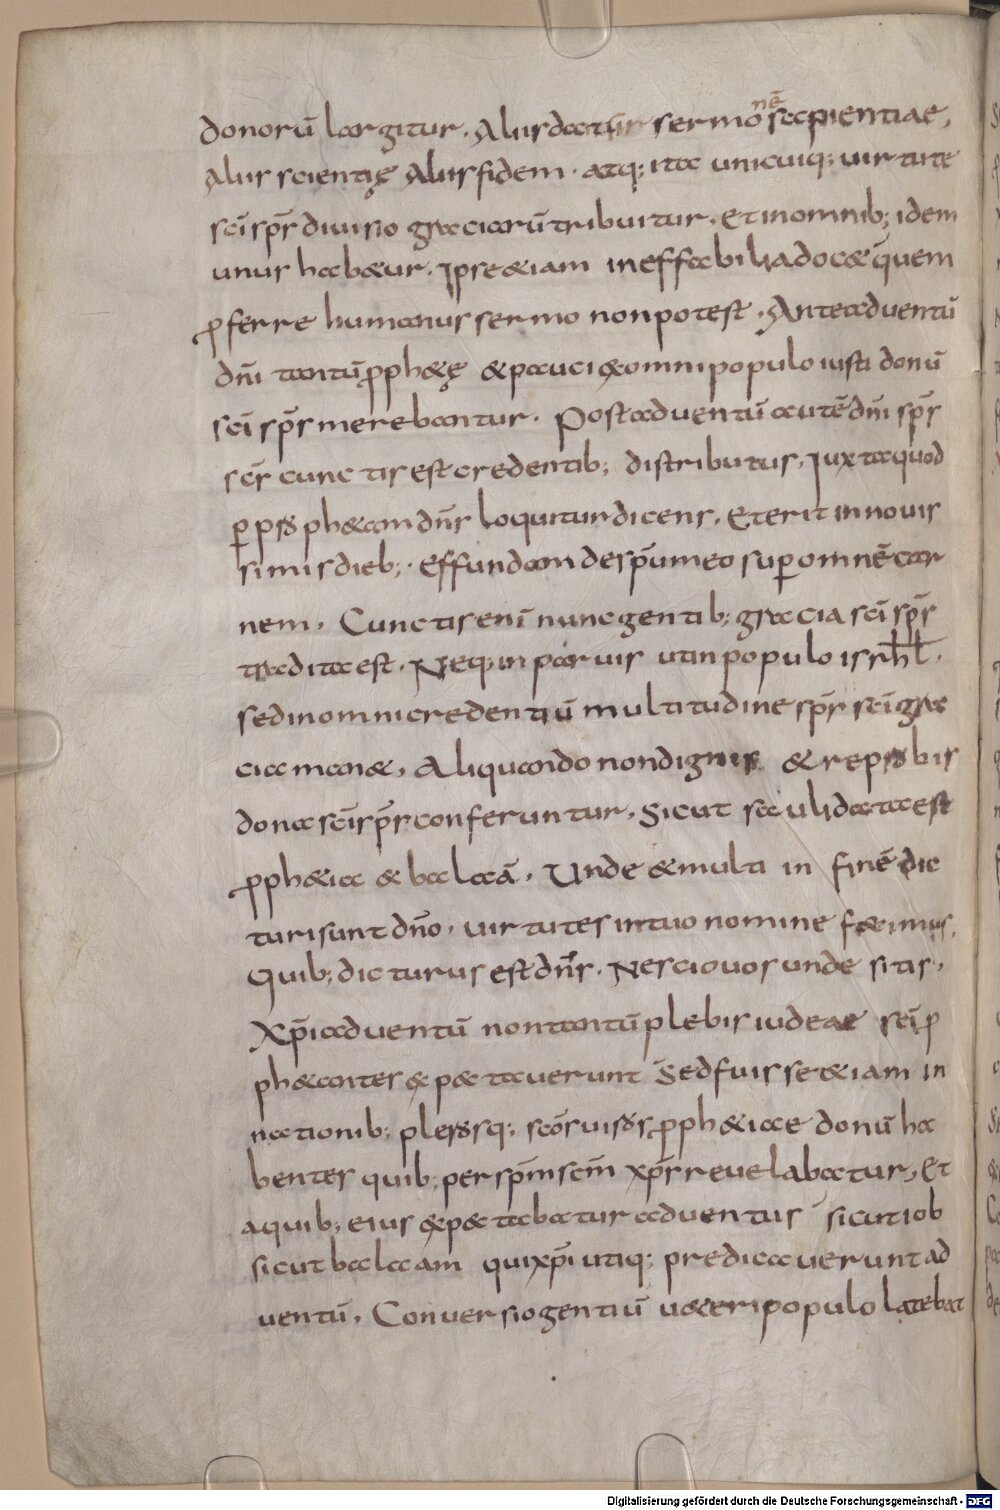 donorū largitur. Aliis datur sermonē sapientiae,
Aliis scientię Aliis fidem. atq; ita unicuiq; uirtute
sc̄i sp̄s diuisio graciarū tribuitur. Et in omnib; idem
unus habetur. Ipse etiam ineffabilia docet quem
proferre humanus sermo non potest. Ante aduentū
dn̄i tantū prophetę & pauci ex omni populo iusti donū
sc̄i sp̄s merebantur. Post aduentū autē dn̄i sp̄s
sc̄s cunctis est credentib; distributus. Iuxta quod
per prophetam dn̄s loquitur dicens. Et erit in nouis
simis dieb;. Effundam de sp̄u meo super omnē car
nem. Cunctis enī nunc gentib; gracia sc̄i sp̄s
tradita est. Neq; in paruis ut in populo isrhl.
sed in omni credentiū multitudine sp̄s sc̄i gra
cia manet. Aliquando non dignis & reprobis
dona sc̄i sp̄s conferuntur. Sicut sauli data est
prophetia & balaā. Unde & multi in finē dic
turi sunt dn̄o. uirtutes in tuo nomine fecimus.
Quib; dicturus est dn̄s. Nescio uos unde sitis.
Xp̄i aduentū non tantū plebis iudeae sc̄i pro
phetantes expectauerunt Sed fuisse etiam in
nationib; plerosq; sc̄os uiros prophetiae donū ha
bentes quib; per sp̄m sc̄m xp̄s reuelabatur, Et
a quib; eius expectabatur aduentus sicut iob
sicut balaam qui xp̄i utiq; predicauerunt ad
uentū. Conuersio gentiū ueteri populo latebat
Digitalisierung gefördert durch die Deutsche Forschungsgemeinschaft - DFG